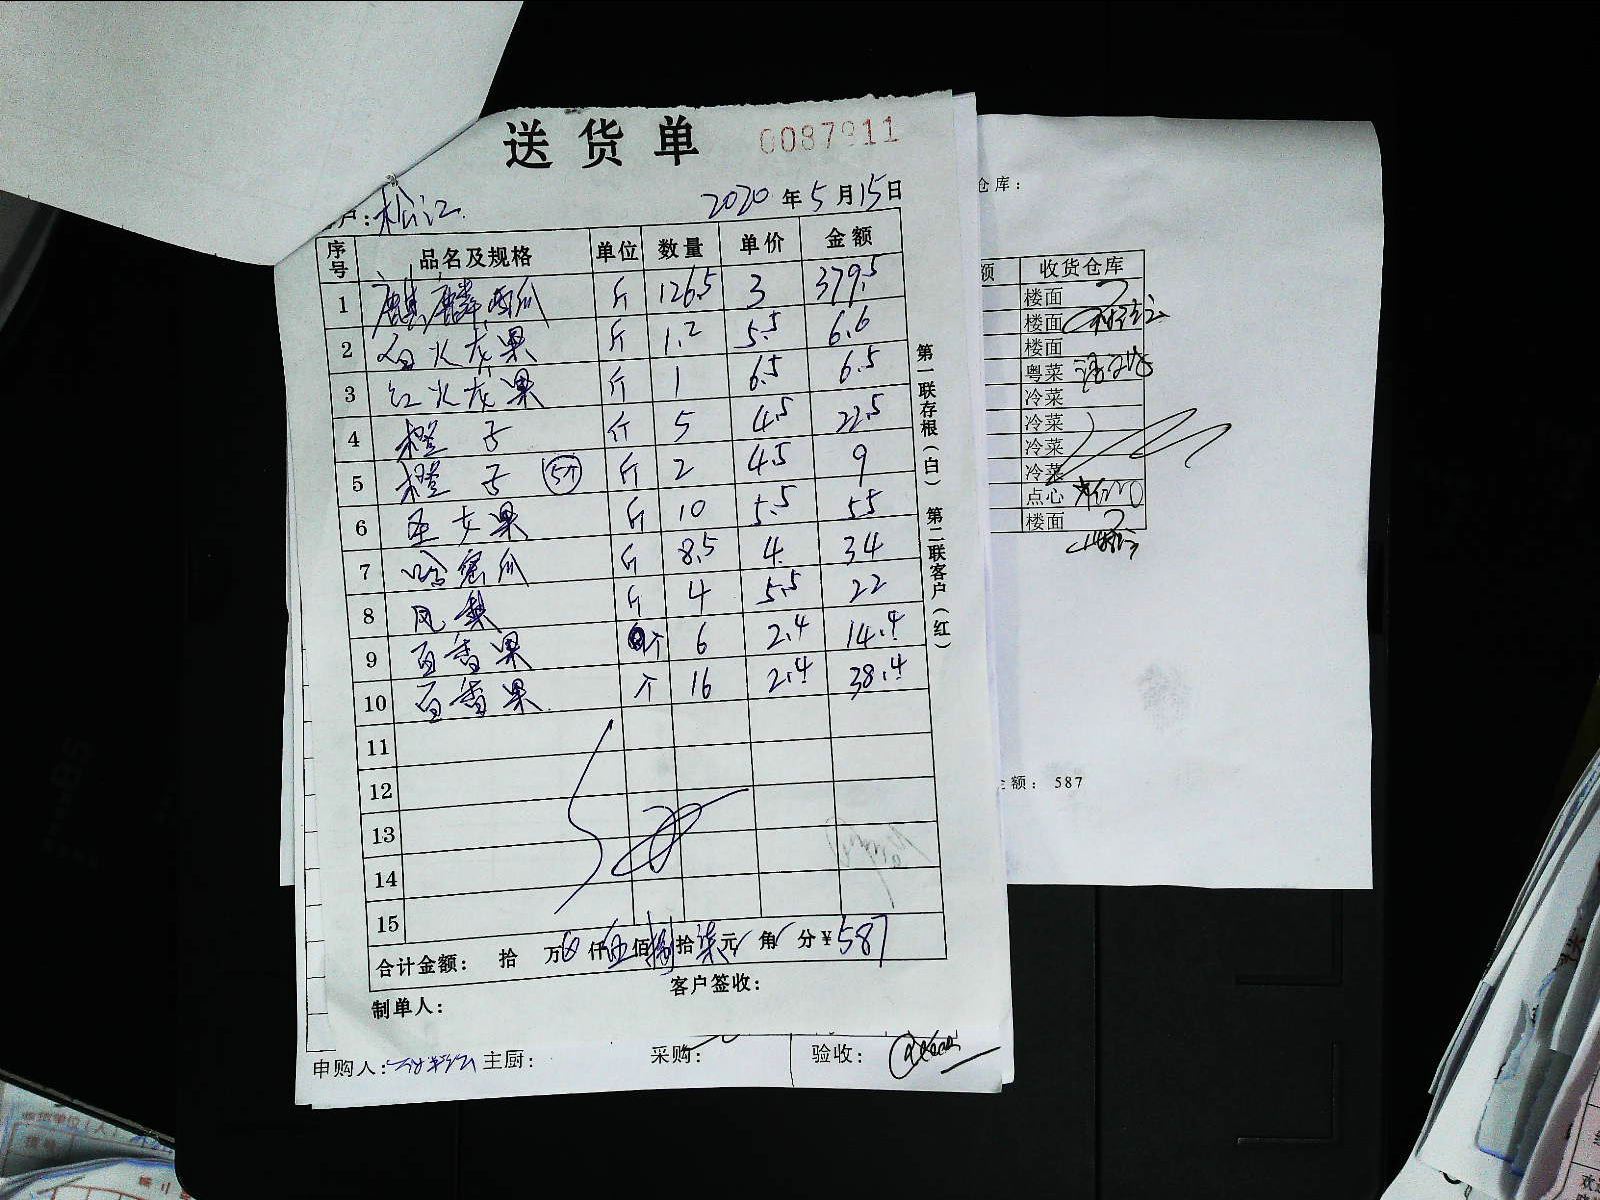 送货单 0087911
户: 松江 2020年5月15日
序号 品名及规格 单位 数量 单价 金额
1 麒麟西瓜 斤 126.5 3 379.5
2 白火龙果 斤 1.2 5.5 6.6
3 红火龙果 斤 1 6.5 6.5
4 橙子 斤 5 4.5 22.5
5 橙子 5个 斤 2 4.5 9
6 圣女果 斤 10 5.5 55
7 哈密瓜 斤 8.5 4 34
8 凤梨 斤 4 5.5 22
9 百香果 个 6 2.4 14.4
10 百香果 个 16 2.4 38.4
11
12
13
14
15
合计金额: 拾 万 0 仟 伍 佰 捌 拾 柒 元 角 分 ¥587
制单人: 客户签收:
第一联存根(白) 第二联客户(红)
申购人: 主厨: 采购: 验收:
仓库:
额 收货仓库
楼面
楼面
楼面
粤菜
冷菜
冷菜
冷菜
冷菜
点心
楼面
额: 587